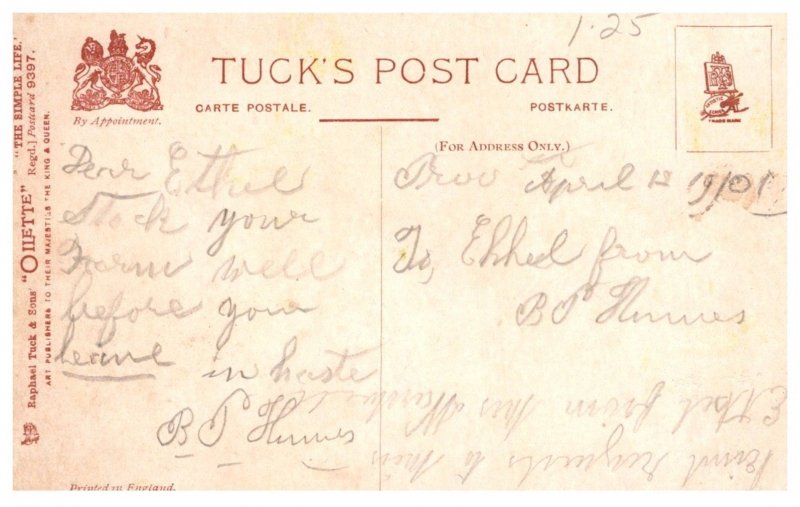 1.25
TUCK'S POST CARD
CARTE POSTALE.
POSTKARTE.
By Appointment.
(FOR ADDRESS ONLY.)
Raphael Tuck & Sons' "OILETTE" "THE SIMPLE LIFE."
Regd.] Postcard 9397.
ART PUBLISHERS TO THEIR MAJESTIES THE KING & QUEEN.
TRADE MARK
Dear Ethel
Stock your
Farm well
before you
leave
in haste
B P Humes
April 12
To, Ethel from
B P Humes
Kind regards to Miss
Ethel from
Printed in England.